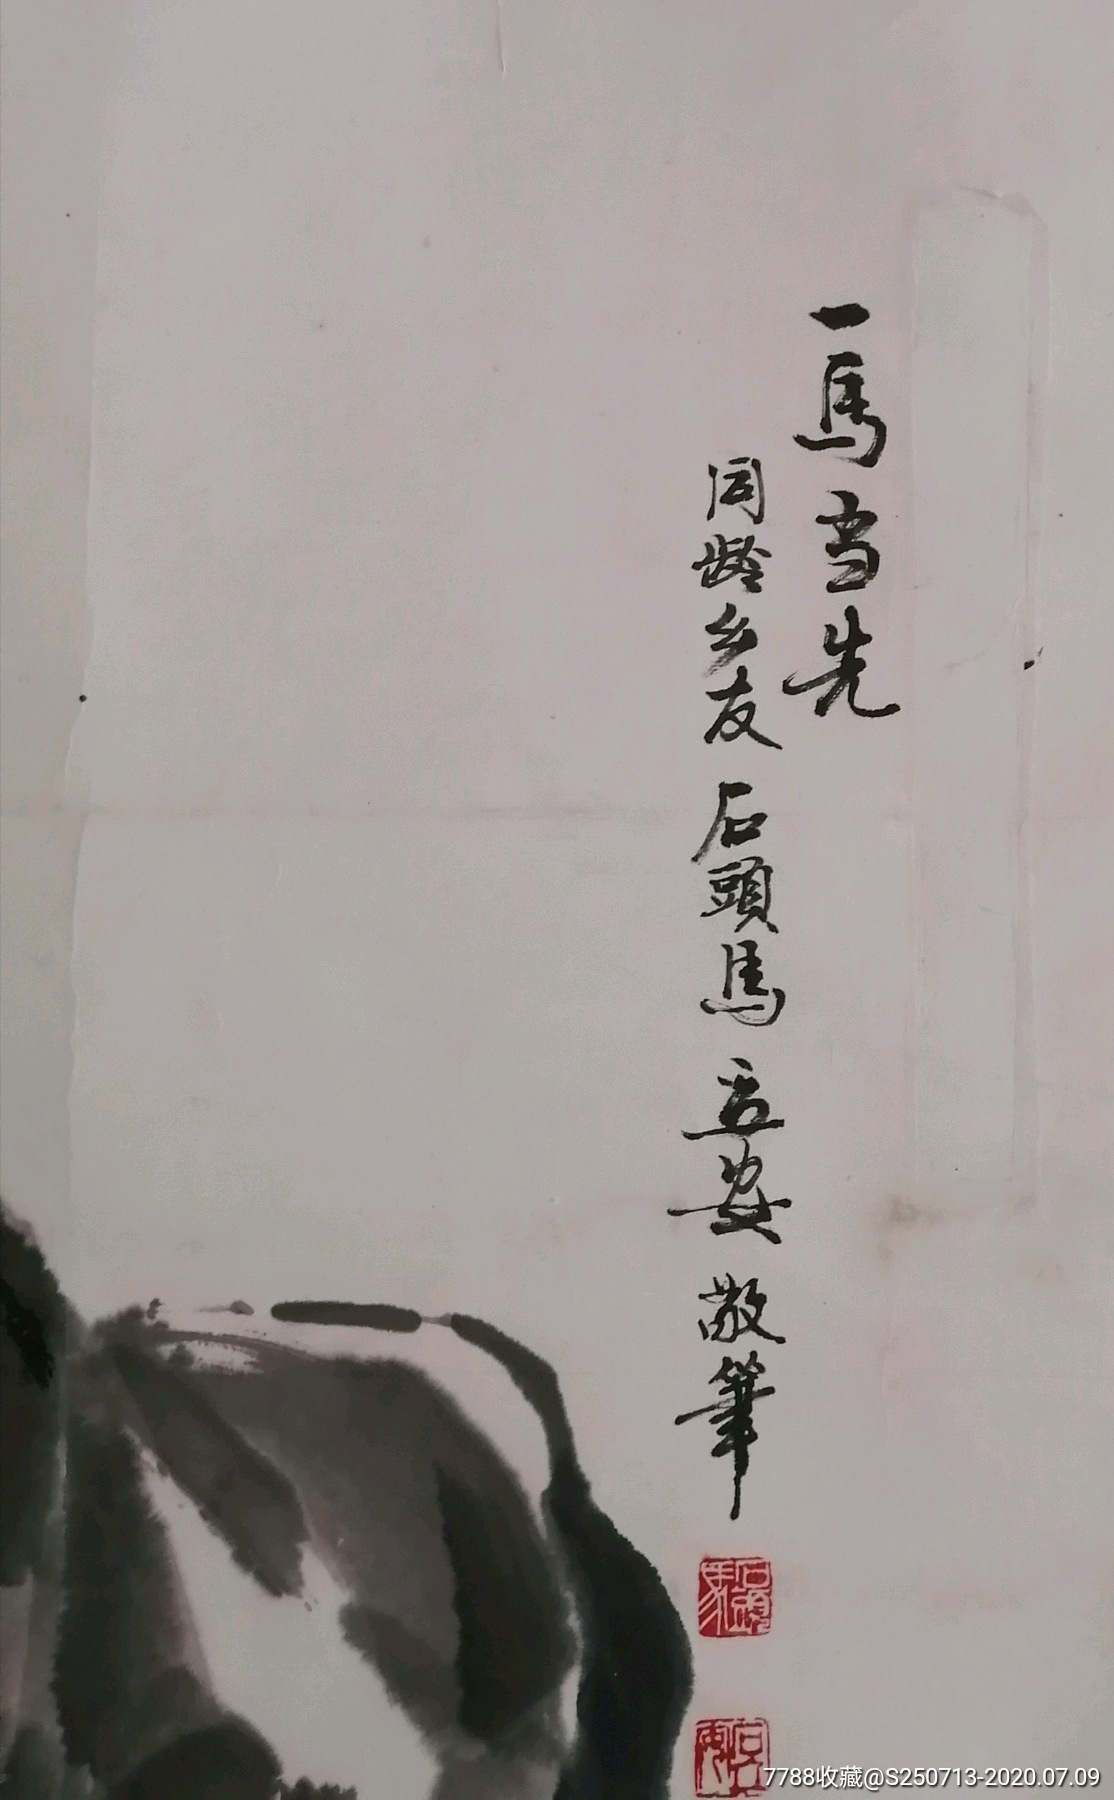 一馬当先
同龄乡友 石頭馬 言安 敬筆
7788收藏@S250713-2020.07.09